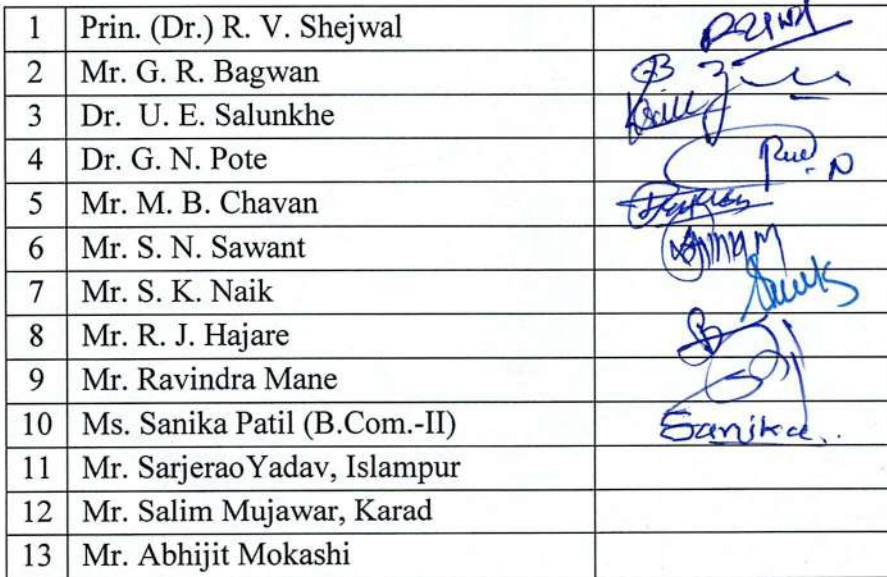 1 Prin. (Dr.) R. V. Shejwal
2 Mr. G. R. Bagwan
3 Dr. U. E. Salunkhe
4 Dr. G. N. Pote
5 Mr. M. B. Chavan
6 Mr. S. N. Sawant
7 Mr. S. K. Naik
8 Mr. R. J. Hajare
9 Mr. Ravindra Mane
10 Ms. Sanika Patil (B.Com.-II) Sanika..
11 Mr. SarjeraoYadav, Islampur
12 Mr. Salim Mujawar, Karad
13 Mr. Abhijit Mokashi